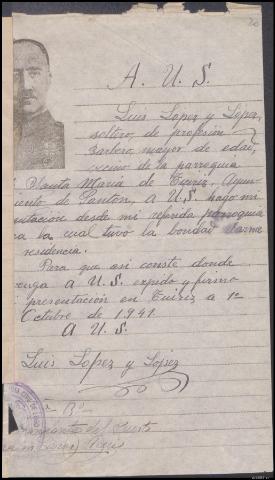 20
A. U. S.
Luis Lopez y Lopez,
soltero, de profesión
Sartero, mayor de edad,
vecino de la parroquia
Santa Maria de Tuiriz, Ayun-
miento de Pantón, a U.S. hago mi
sentación desde mi referida parroquia
ra la cual tuvo la bondad darme
residencia.
Para que asi conste donde
venga a U.S. expido y firmo
presentación en Tuiriz a 1º
Octubre de 1.941.
A U.S.
Luis Lopez y Lopez
Vº Bº
Comandante del Puesto